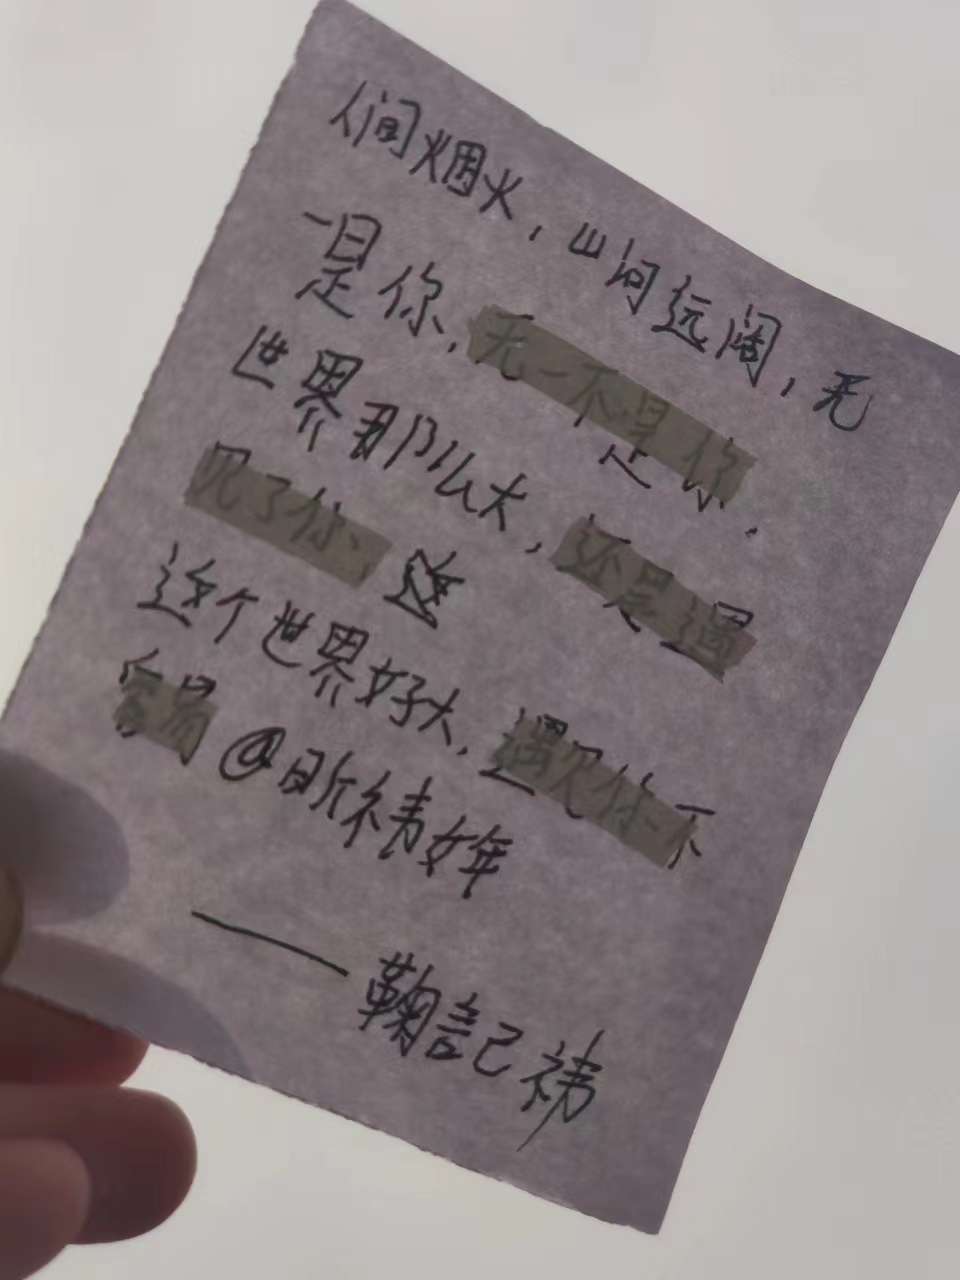 人间烟火，山河远阔，无
一是你，无一不是你，
世界那么大，还是遇
见了你、
这个世界好大，遇见你不
容易 @昕祎姩
——鞠記祎